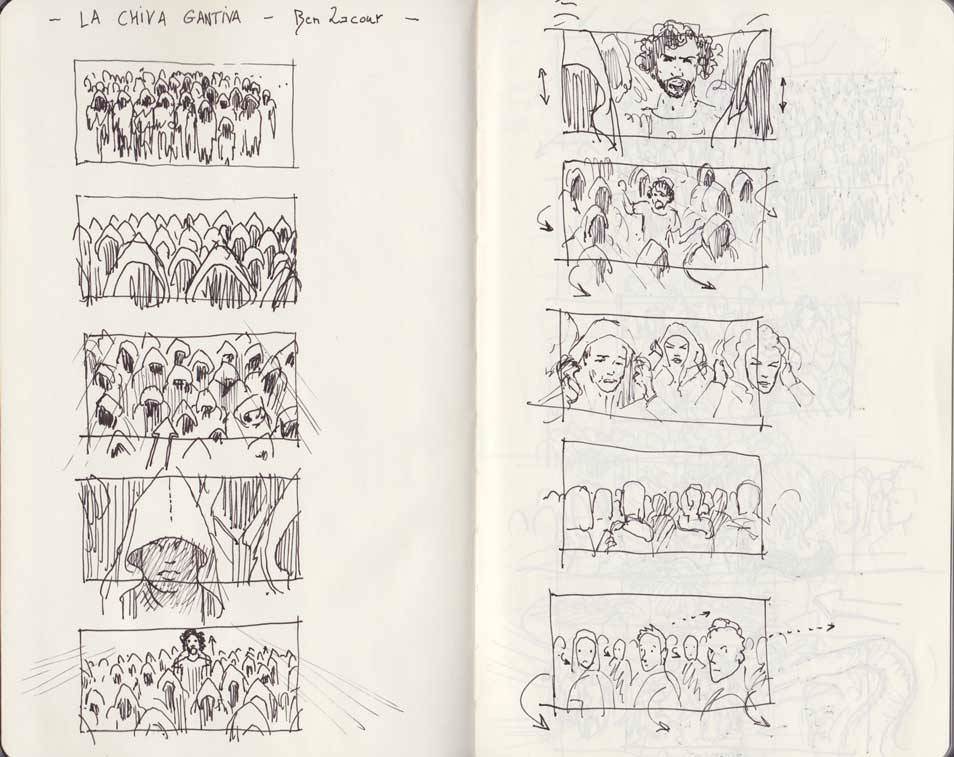 - LA CHIVA GANTIVA - Ben Lacour -